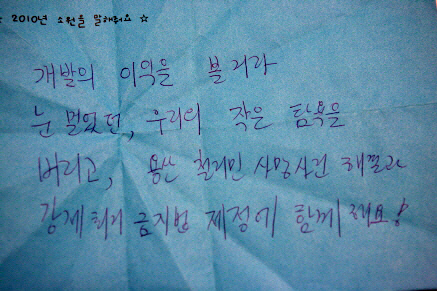 ☆ 2010년 소원을 말해줘요 ☆
개발의 이익을
눈 멀었던, 우리의 작은 탐욕을
버리고, 용산 철거민 사망사건 해결과
강제퇴거 금지법 제정에 함께 해요!